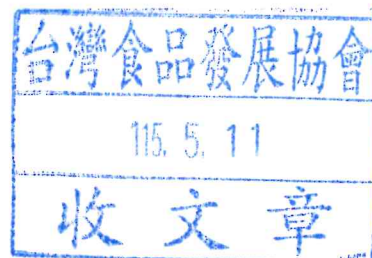 台灣食品發展協會
115. 5. 11
收文章